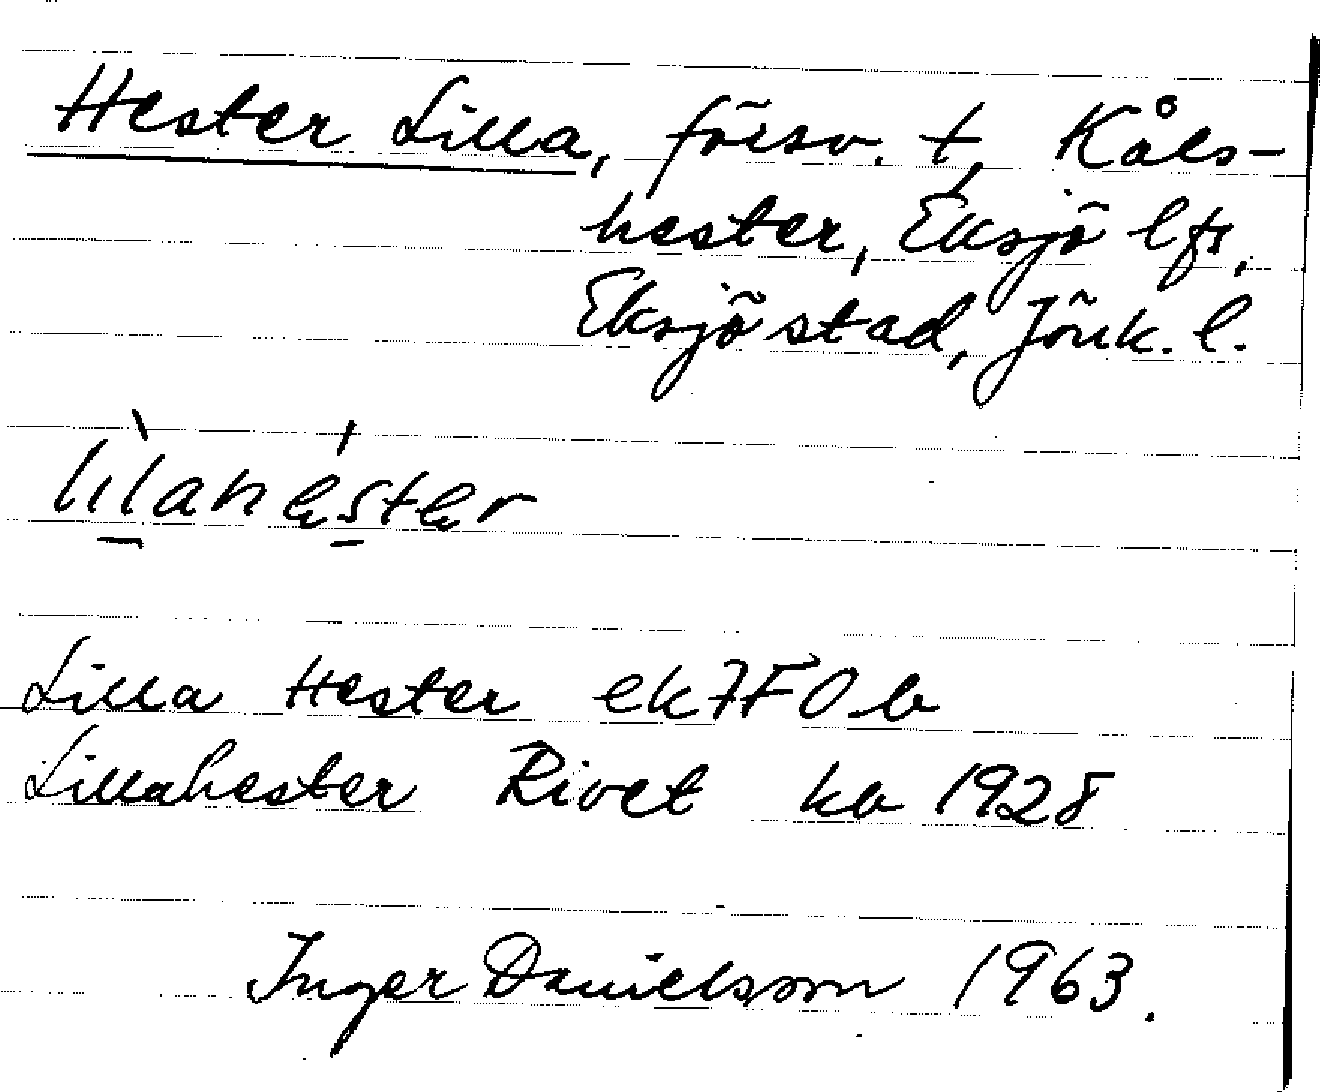 Hester Lilla, försv. t, Kåls-
hester, Eksjö lfs,
Eksjö stad, Jönk. l.
lìlahéster
Lilla Hester ek 7F0b
Lillahester Rivet ka 1928
Inger Danielsson 1963.